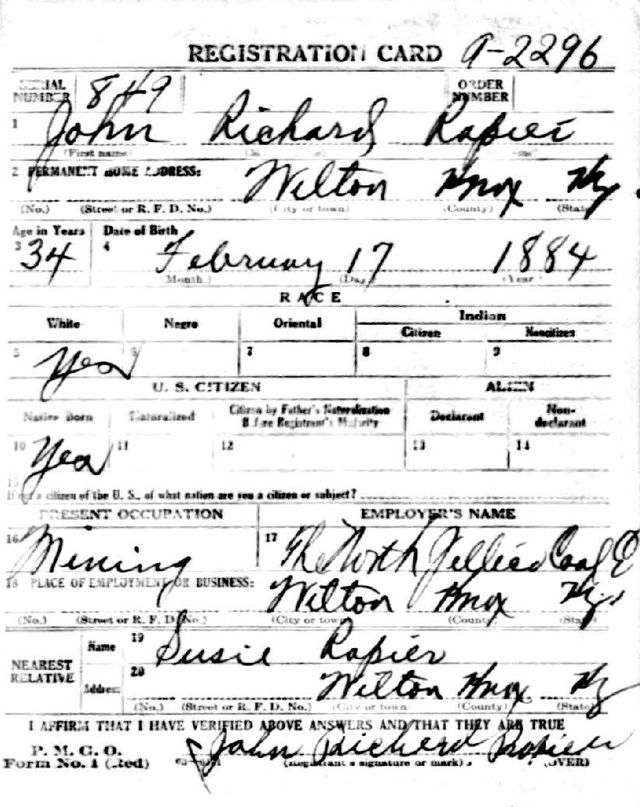 REGISTRATION CARD A-2296
SERIAL NUMBER 849 ORDER NUMBER
1 John Richard Rapier
(First name)
2 PERMANENT HOME ADDRESS: Wilton Knox Ky.
(No.) (Street or R. F. D. No.) (City or town) (County) (State)
Age in Years Date of Birth
3 34 4 February 17 1884
(Month.) (Day.) (Year.)
RACE
White Negro Oriental Indian
Citizen Noncitizen
5 Yes 6 7 8 9
U. S. CITIZEN ALIEN
Native Born Naturalized Citizen by Father's Naturalization Before Registrant's Majority Declarant Non-declarant
10 Yes 11 12 13 14
15
If not a citizen of the U. S., of what nation are you a citizen or subject?
PRESENT OCCUPATION EMPLOYER'S NAME
16 Mining 17 The North Jellico Coal
18 PLACE OF EMPLOYMENT OR BUSINESS: Wilton Knox Ky.
(No.) (Street or R. F. D. No.) (City or town) (County) (State)
NEAREST RELATIVE Name 19 Susie Rapier
Address 20 Wilton Knox Ky
(No.) (Street or R. F. D. No.) (City or town) (County) (State)
I AFFIRM THAT I HAVE VERIFIED ABOVE ANSWERS AND THAT THEY ARE TRUE
P. M. G. O.
Form No. 1 (Red) John Richerd Rapier
(Registrant's signature or mark) (OVER)